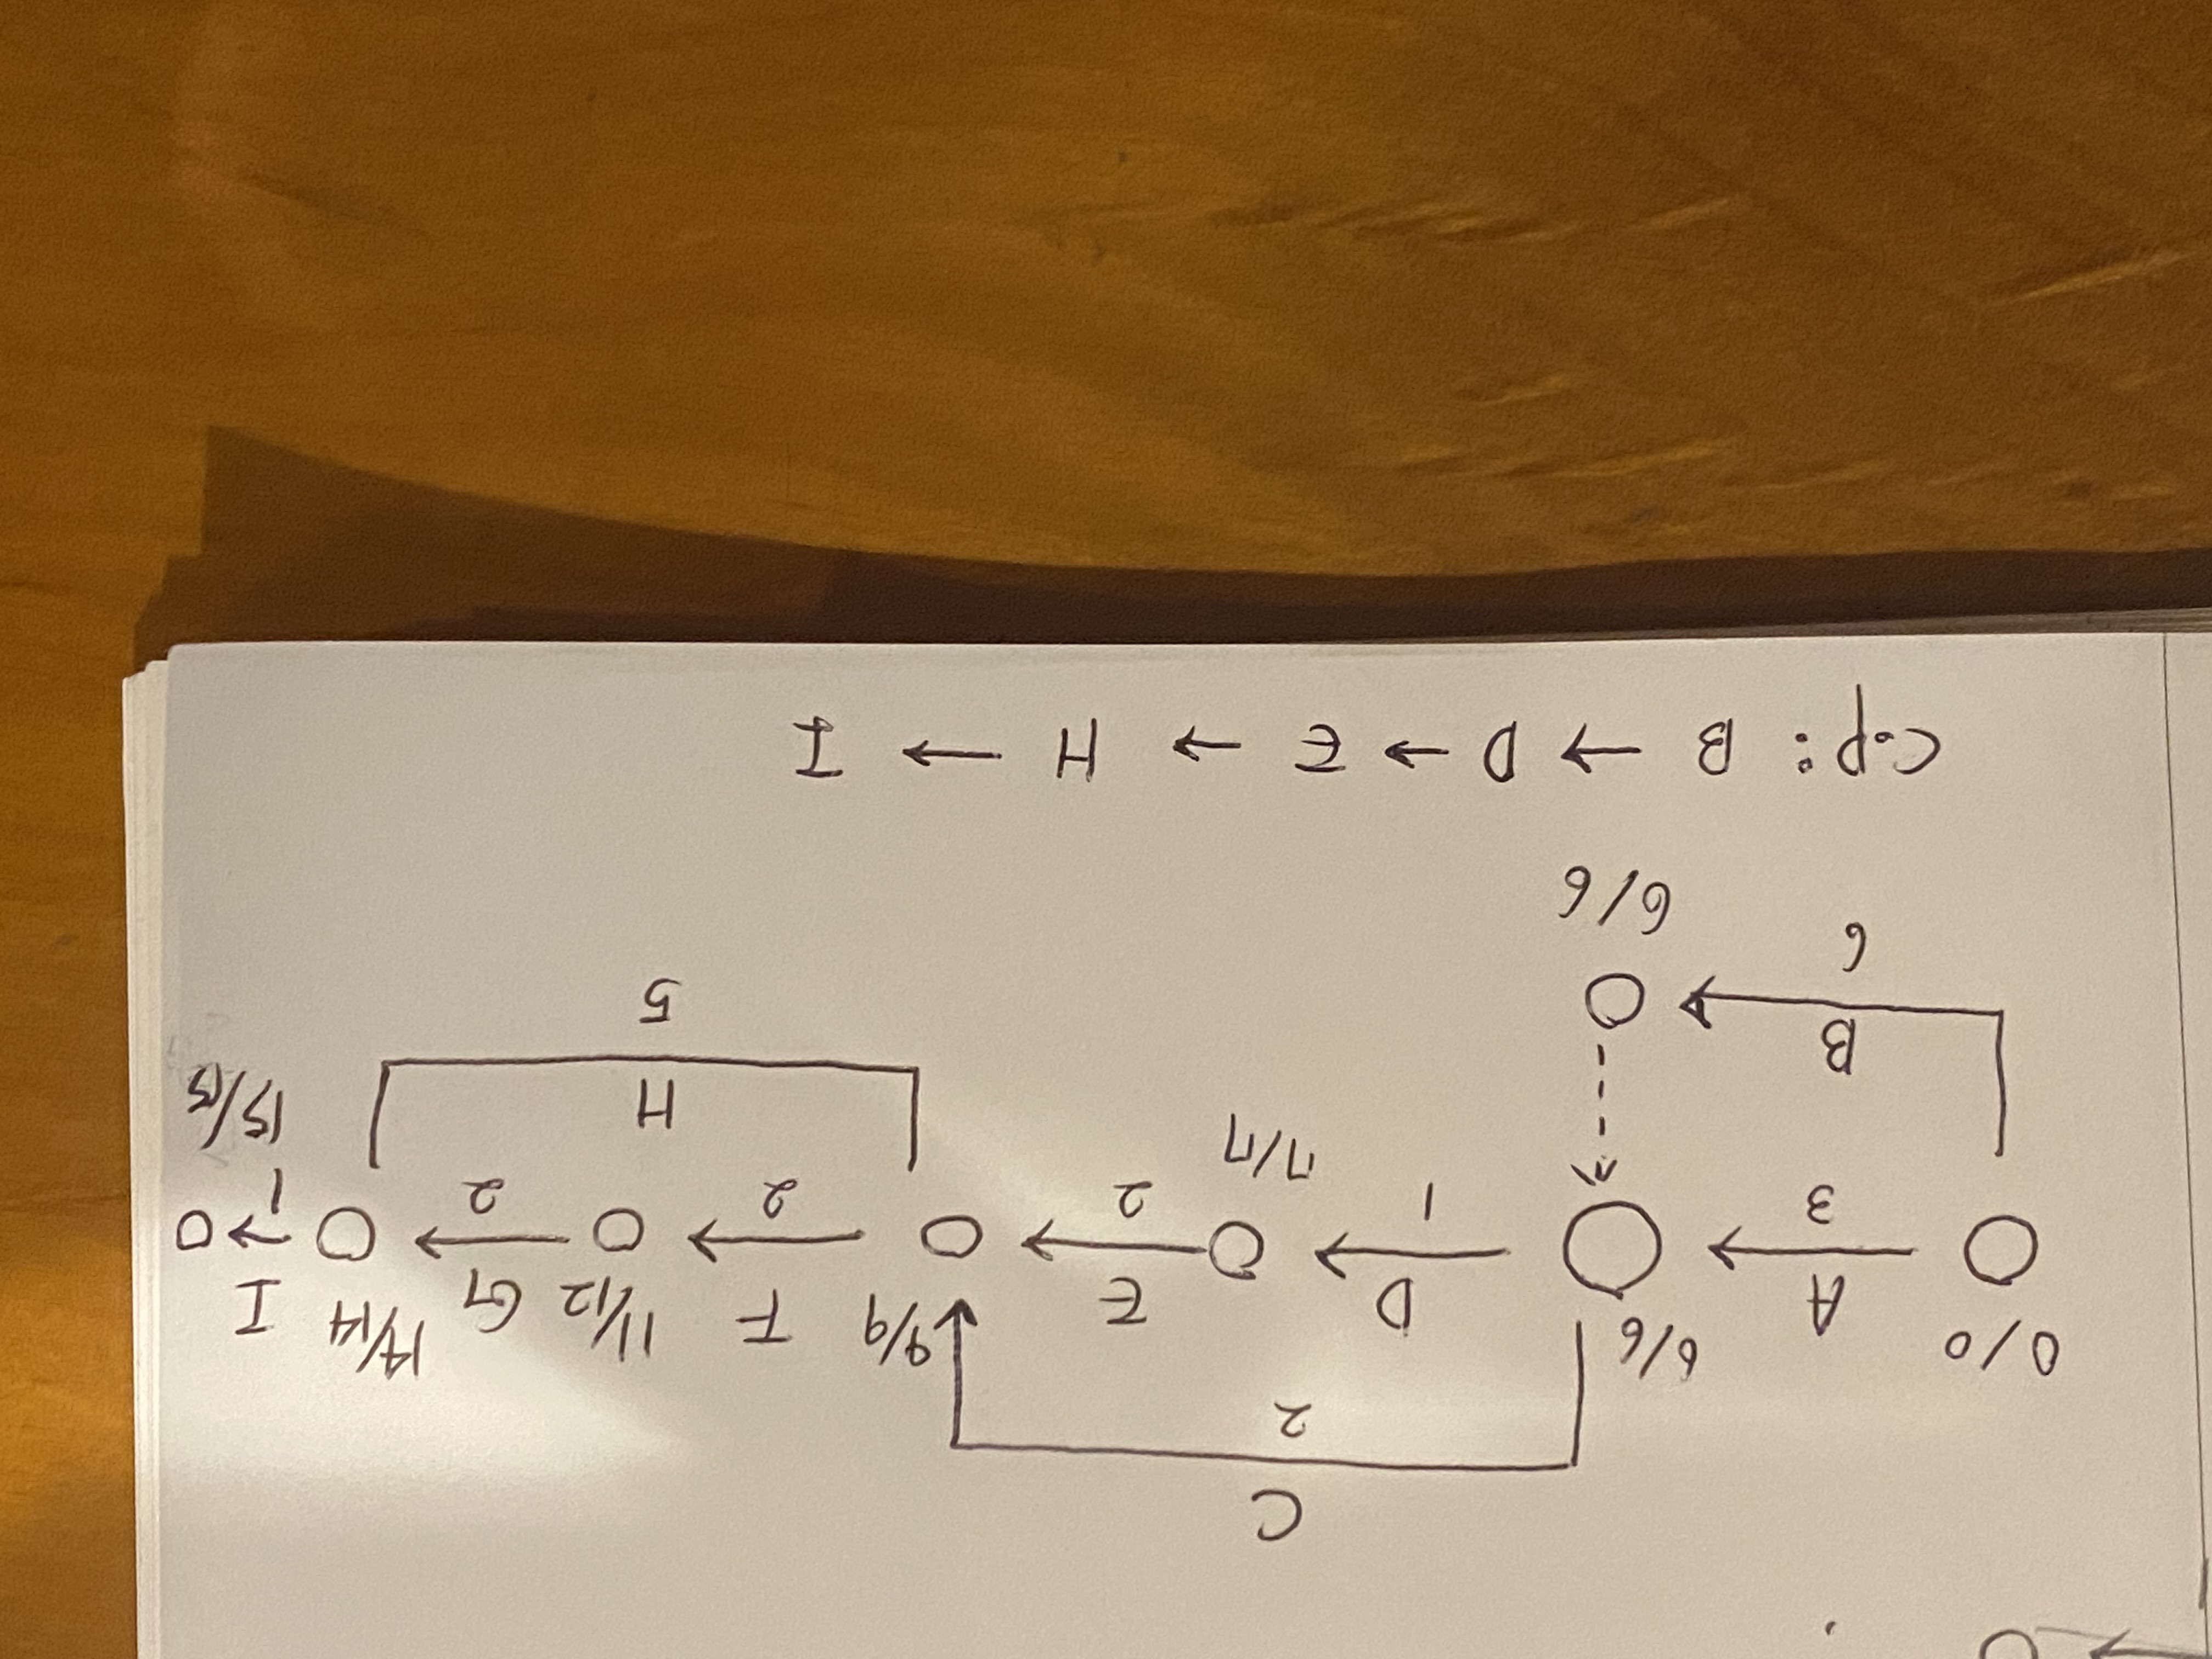 C
2
0/0 A 6/6 D E 9/9 F 11/12 G 14/14 I
3 1 2 2 2 1
7/7 15/15
B H
6 5
6/6
C.P: B → D → E → H → I